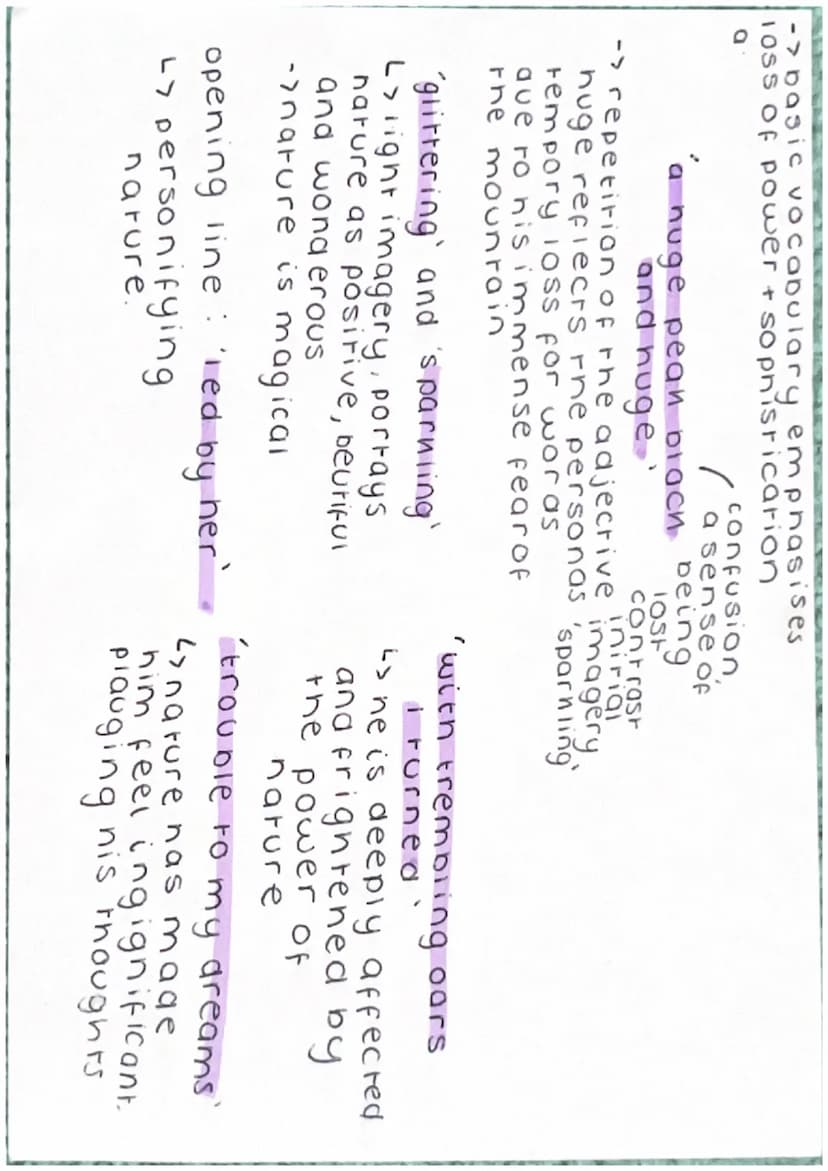 -> basic vocabulary emphasises
loss of power + sophistication
a
'a huge peak black
and huge'
confusion,
a sense of
being
lost
contrast
initial
imagery
'sparkling'
-> repetition of the adjective
huge reflects the personas
tempory loss for words
due to his immense fear of
the mountain
'glittering' and 'sparkling'
↳ light imagery, portrays
nature as positive, beutiful
and wonderous
-> nature is magical
opening line: 'led by her'
↳ personifying
nature.
'with trembling oars
I turned'
↳ he is deeply affected
and frightened by
the power of
nature
'trouble to my dreams'
↳ nature has made
him feel ingignificant.
plauging his thoughts